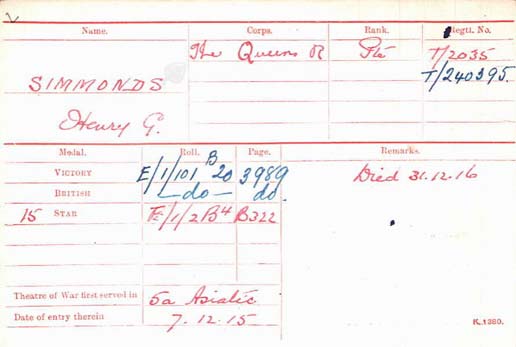 Name. Corps. Rank. Regtl. No.
The Queens R Pte T/2035
T/240395.
SIMMONDS
Henry G.
Medal. Roll. Page. Remarks.
VICTORY E/1/101 B 20 3989 Died 31.12.16
BRITISH —do— do.
15 STAR TE/1/2B4 B322
Theatre of War first served in 5a Asiatic
Date of entry therein 7.12.15
K.1380.